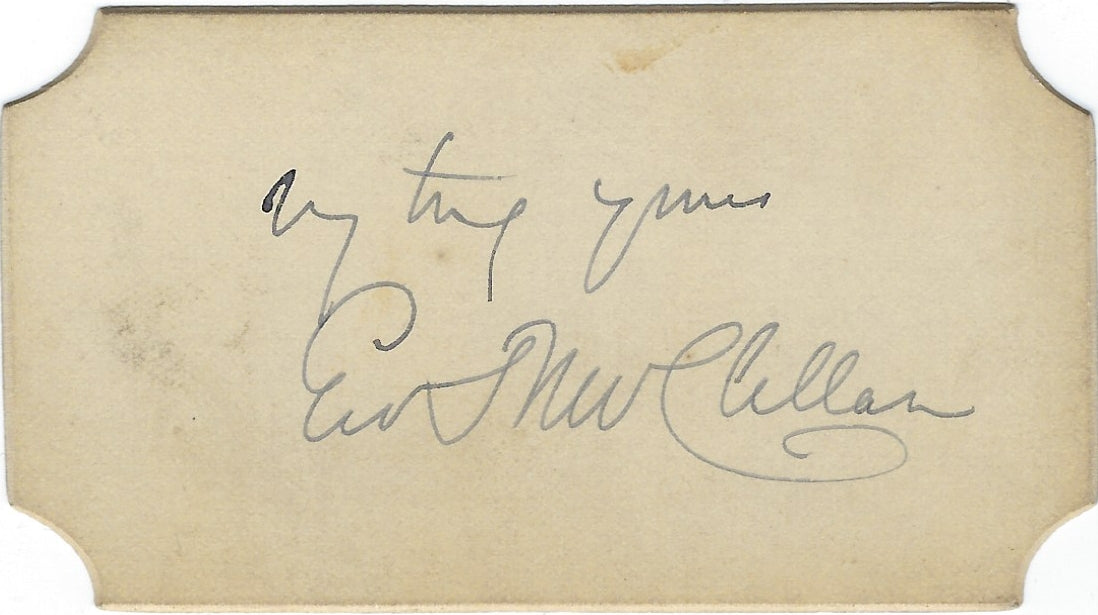 Vy truly yours
Geo B McClellan